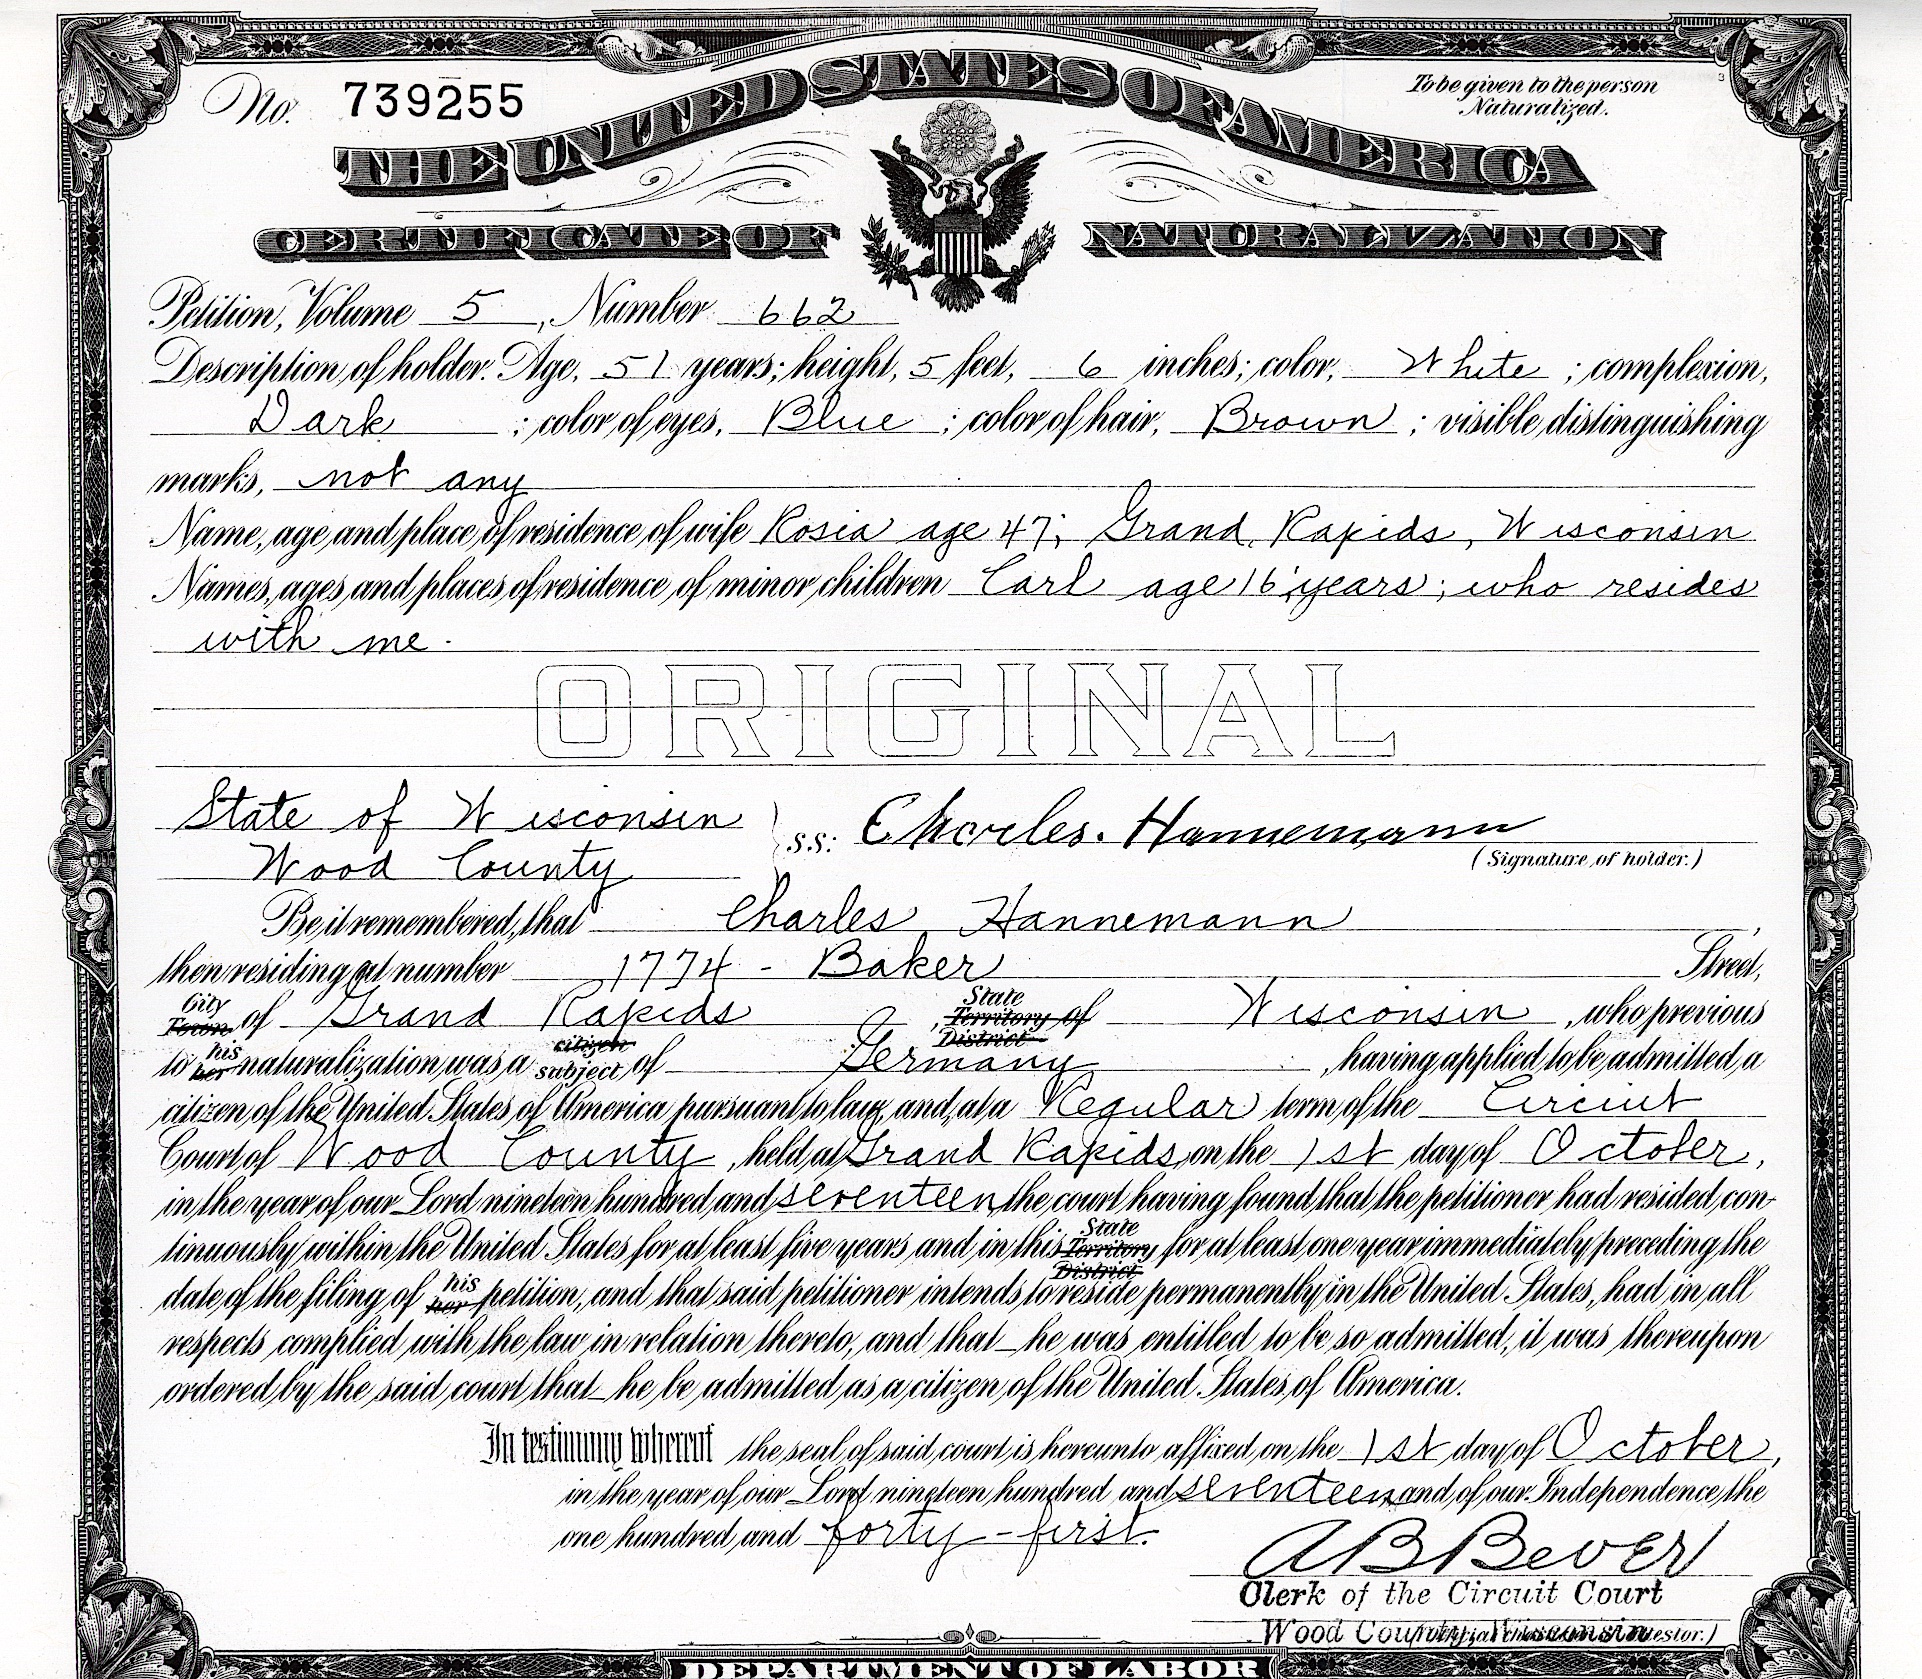 No. 739255
To be given to the person
Naturalized.
THE UNITED STATES OF AMERICA
CERTIFICATE OF NATURALIZATION
Petition, Volume 5, Number 662
Description of holder. Age, 51 years; height, 5 feet, 6 inches; color, White; complexion,
Dark; color of eyes, Blue; color of hair, Brown; visible distinguishing
marks, not any
Name, age and place of residence of wife Rosia age 47; Grand Rapids, Wisconsin
Names, ages and places of residence of minor children Carl age 16 years; who resides
with me.
ORIGINAL
State of Wisconsin
Wood County
s.s: Charles. Hannemann
(Signature of holder.)
Be it remembered, that Charles Hannemann,
then residing at number 1774 - Baker Street,
City Town of Grand Rapids, State Territory of District Wisconsin, who previous
to his her naturalization was a citizen subject of Germany, having applied to be admitted a
citizen of the United States of America pursuant to law, and, at a Regular term of the Circiut
Court of Wood County, held at Grand Rapids, on the 1st day of October,
in the year of our Lord nineteen hundred and seventeen, the court having found that the petitioner had resided con-
tinuously within the United States for at least five years and in this State Territory District for at least one year immediately preceding the
date of the filing of his her petition, and that said petitioner intends to reside permanently in the United States, had in all
respects complied with the law in relation thereto, and that he was entitled to be so admitted, it was thereupon
ordered by the said court that he be admitted as a citizen of the United States of America.
In testimony whereof the seal of said court is hereunto affixed on the 1st day of October,
in the year of our Lord nineteen hundred and seventeen and of our Independence the
one hundred and forty-first.
A B Bever
Clerk of the Circuit Court
Wood County, Wisconsin
DEPARTMENT OF LABOR